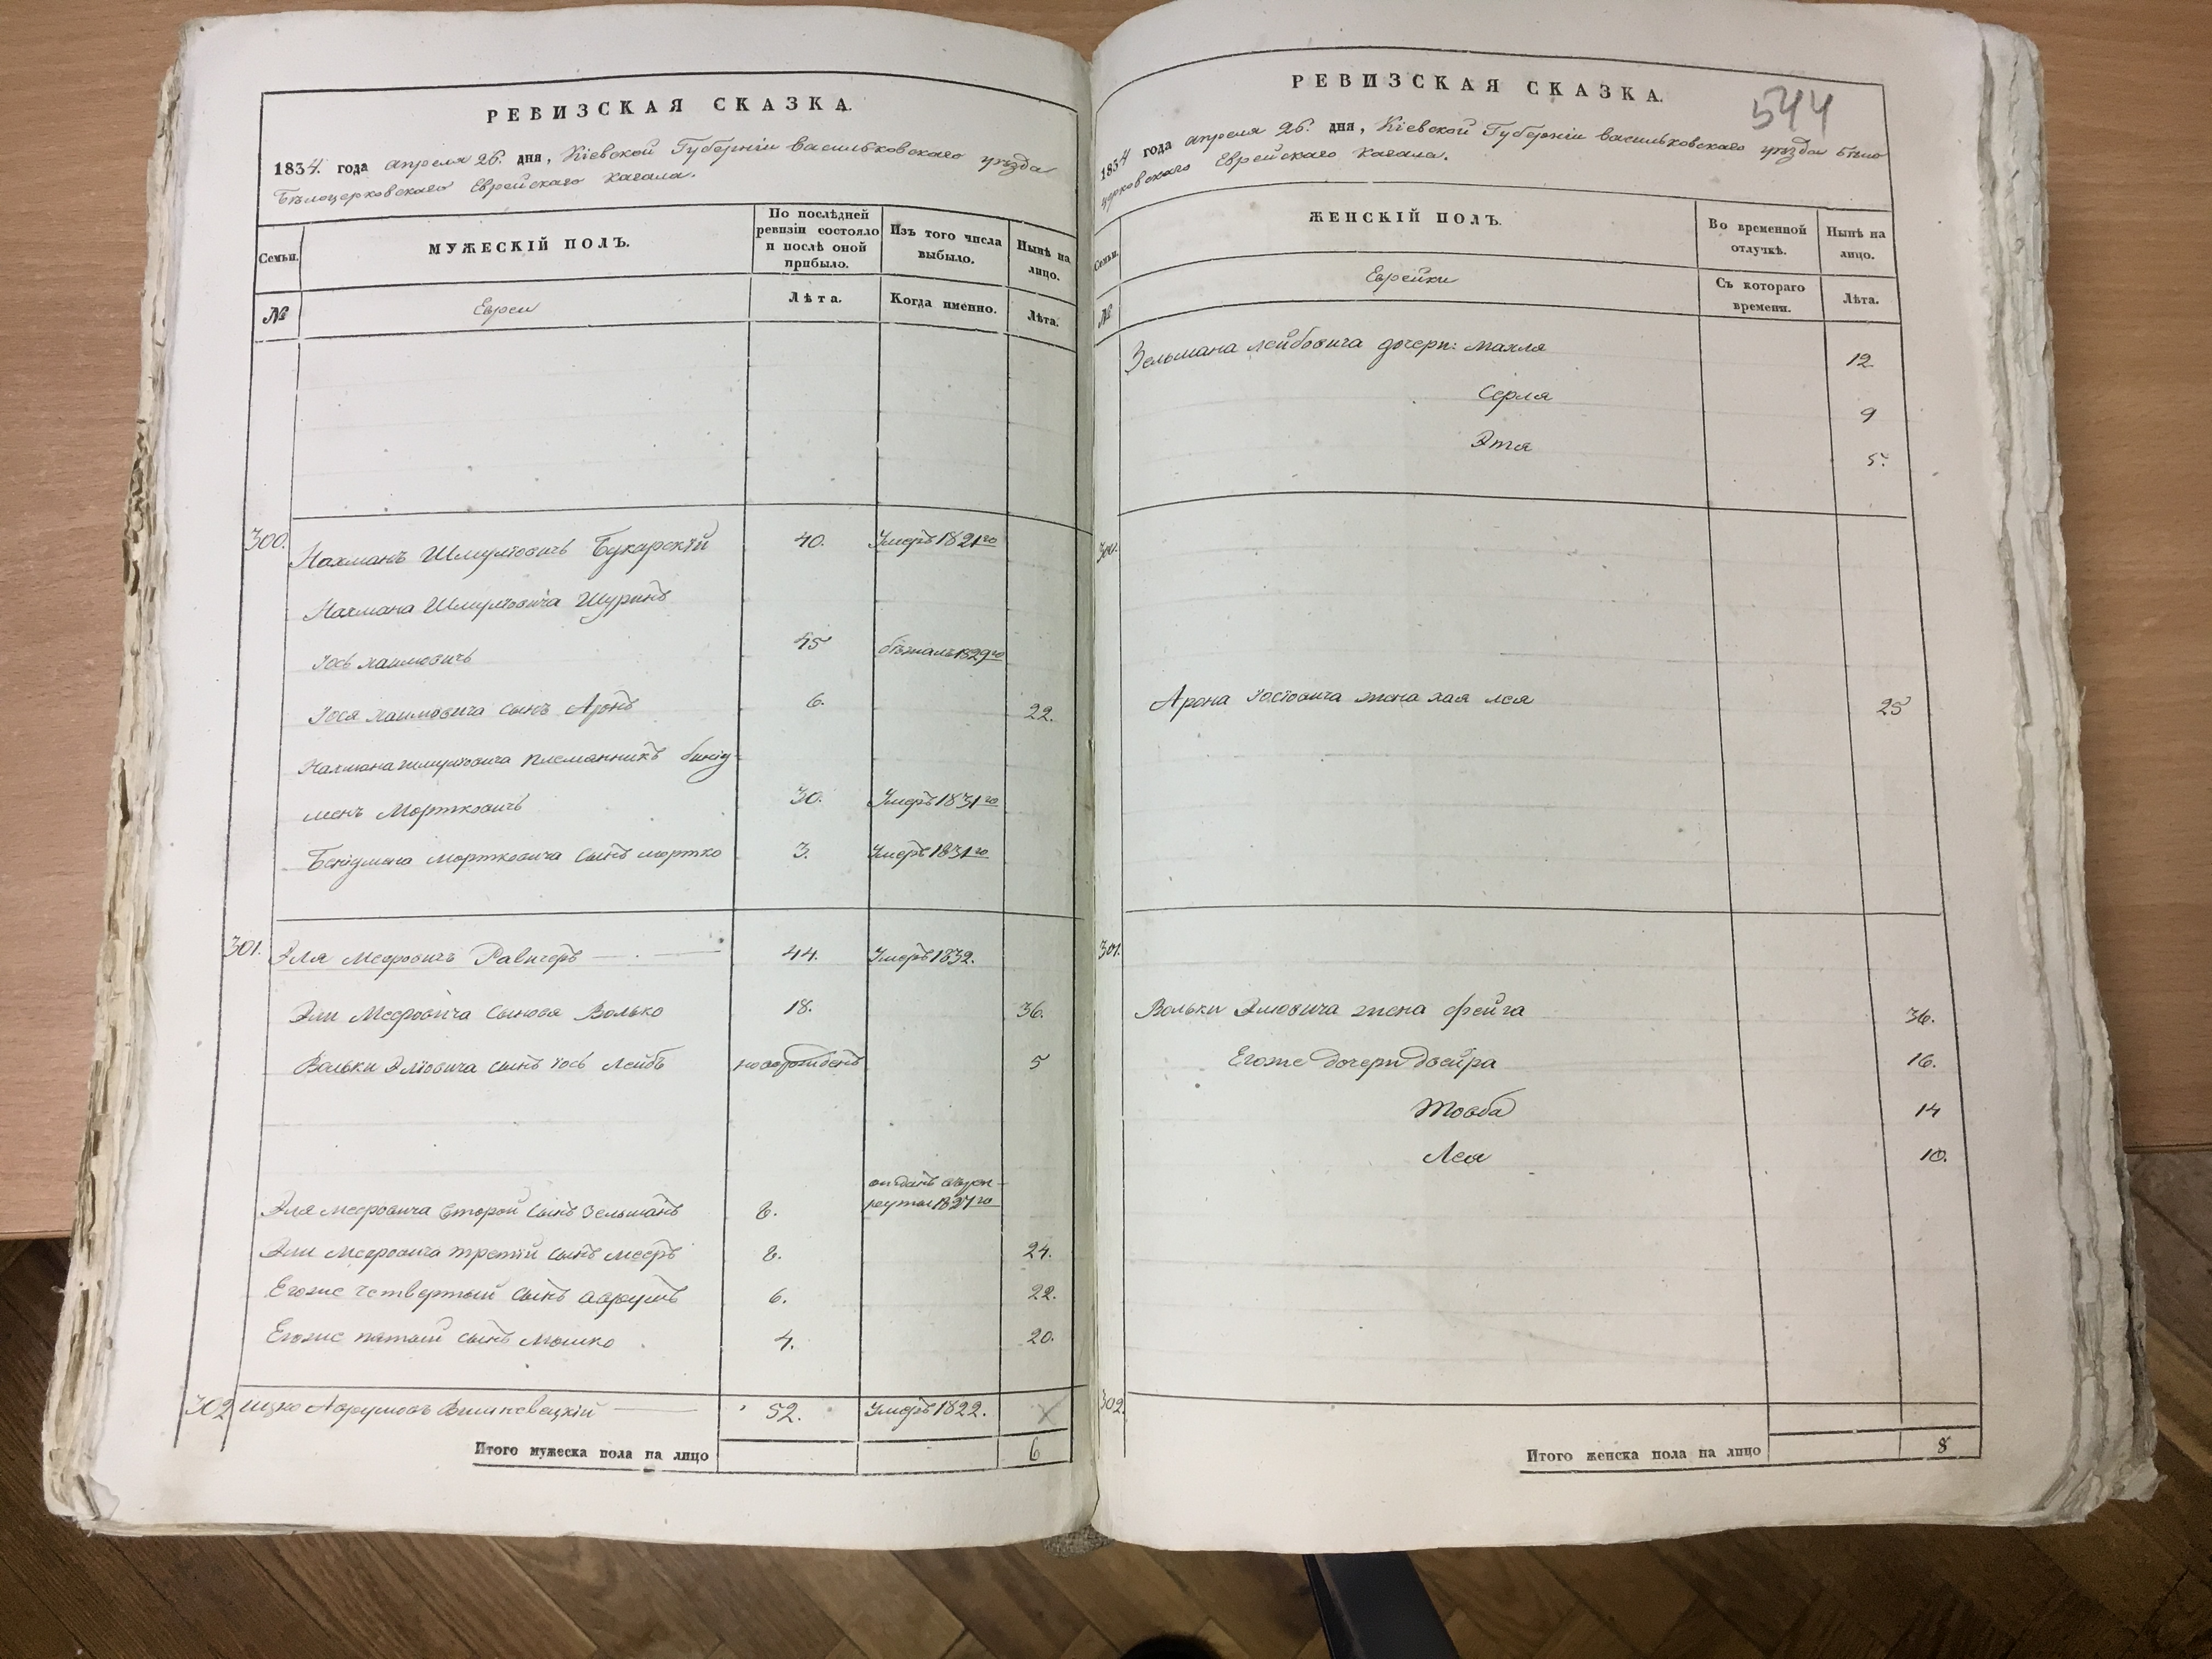 РЕВИЗСКАЯ СКАЗКА.
1834. года апреля 26. дня, Кіевской Губерніи васильковскаго уѣзда
Бѣлоцерковскаго Еврейскаго кагала.
Семьи.
МУЖЕСКІЙ ПОЛЪ.
По послѣдней ревизіи состояло и послѣ оной прибыло.
Изъ того числа выбыло.
Нынѣ на лицо.
№
Евреи
Лѣта.
Когда именно.
Лѣта.
300. Нахманъ Шмулiовичъ Букарскій 40. Умеръ 1821го
Нахмана Шмулiовича Шуринъ
Іось хаимовичъ 45 бѣжалъ 1829го
Іося хаимовича сынъ Аронъ 6. 22.
Нахмана шмулiовича племянникъ
менъ Мортковичъ 30. Умеръ 1831го
мортковича сынъ мортко 3. Умеръ 1831го
301. Эля Меeровичъ 44. Умеръ 1832.
Эли Меeровича сыновя Волько 18. 36.
Вольки Элiовича сынъ iось Лейбъ новорожденъ 5
отданъ
рекруты 1827го
Эля меeровича второй сынъ Зельманъ 8.
Эли Меeровича третiй сынъ меeръ 8. 24.
Егоже четвертый сынъ аврумъ 6. 22.
Егоже пятый сынъ Мошко 4. 20.
302 Ицко Аврумовъ Вишневецкiй 52. Умеръ 1822. х
Итого мужеска пола на лицо 6
РЕВИЗСКАЯ СКАЗКА.
544
1834 года апреля 26. дня, Кіевской Губерніи васильковскаго уѣзда Бѣло
церковскаго Еврейскаго кагала.
Семьи.
ЖЕНСКІЙ ПОЛЪ.
Во временной отлучкѣ.
Нынѣ на лицо.
№
Еврейки
Съ котораго времени.
Лѣта.
Зельмана лейбовича дочери: махля 12
Серля 9
Этя 5.
300.
Арона Iосiовича жена хая лея 25
301.
Вольки Элиовича жена фейга 36.
Егоже дочери двейра 16.
Товба 14
Лея 10.
302.
Итого женска пола на лицо 8